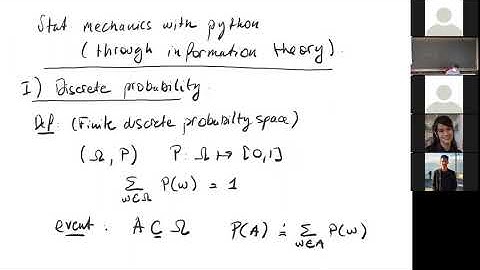 Stat mechanics with python
(through information theory).
I) Discrete probability.
Def: (Finite discrete probability space)
(Ω, P)  P: Ω ↦ [0,1]
∑ P(ω) = 1
ω∈Ω
event. A ⊆ Ω  P(A) ≐ ∑ P(ω)
ω∈A